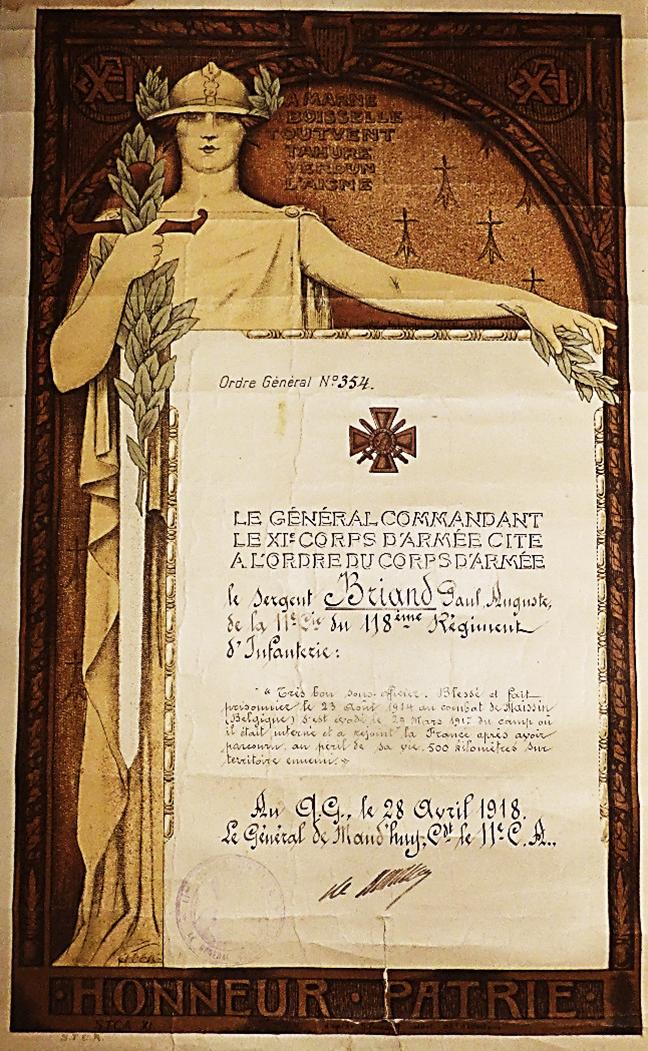 XI
XI
LA MARNE
BOISSELLE
TOUTVENT
TAHURE
VERDUN
L'AISNE
Ordre Général Nº 354.
LE GÉNÉRAL COMMANDANT
LE XIᵉ CORPS D'ARMÉE CITE
A L'ORDRE DU CORPS D'ARMÉE
le Sergent Briand Paul, Auguste,
de la 11ᵉ Cie du 118ème Régiment
d'Infanterie:
"Très bon sous-officier. Blessé et fait
prisonnier le 23 Août 1914 au combat de Maissin
(Belgique) s'est évadé le 29 Mars 1917 du camp où
il était interné et a rejoint la France après avoir
parcouru, au péril de sa vie, 500 kilomètres sur
territoire ennemi."
Au Q.G., le 28 Avril 1918.
Le Général de Maud'huy, Cdt le 11ᵉ C.A..
HONNEUR · PATRIE